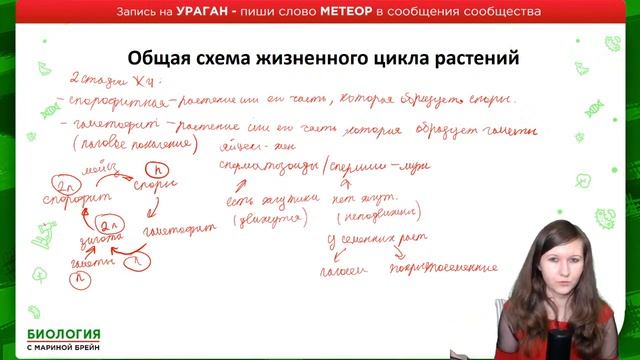 Запись на УРАГАН - пиши слово МЕТЕОР в сообщения сообщества
Общая схема жизненного цикла растений
2 стадии ЖЦ:
- спорофитная - растение или его часть, которая образует споры.
- гаметофит - растение или его часть которая образует гаметы
(половое поколение)
яйцекл - жен
сперматозоиды / спермии - муж
мейоз
2n
n
спорофит
споры
есть жгутики
(движутся)
нет жгут.
(неподвижны)
2n
зигота
гаметофит
у семенных раст
гаметы
n
n
голосем
покрытосеменные
БИОЛОГИЯ
С МАРИНОЙ БРЕЙН